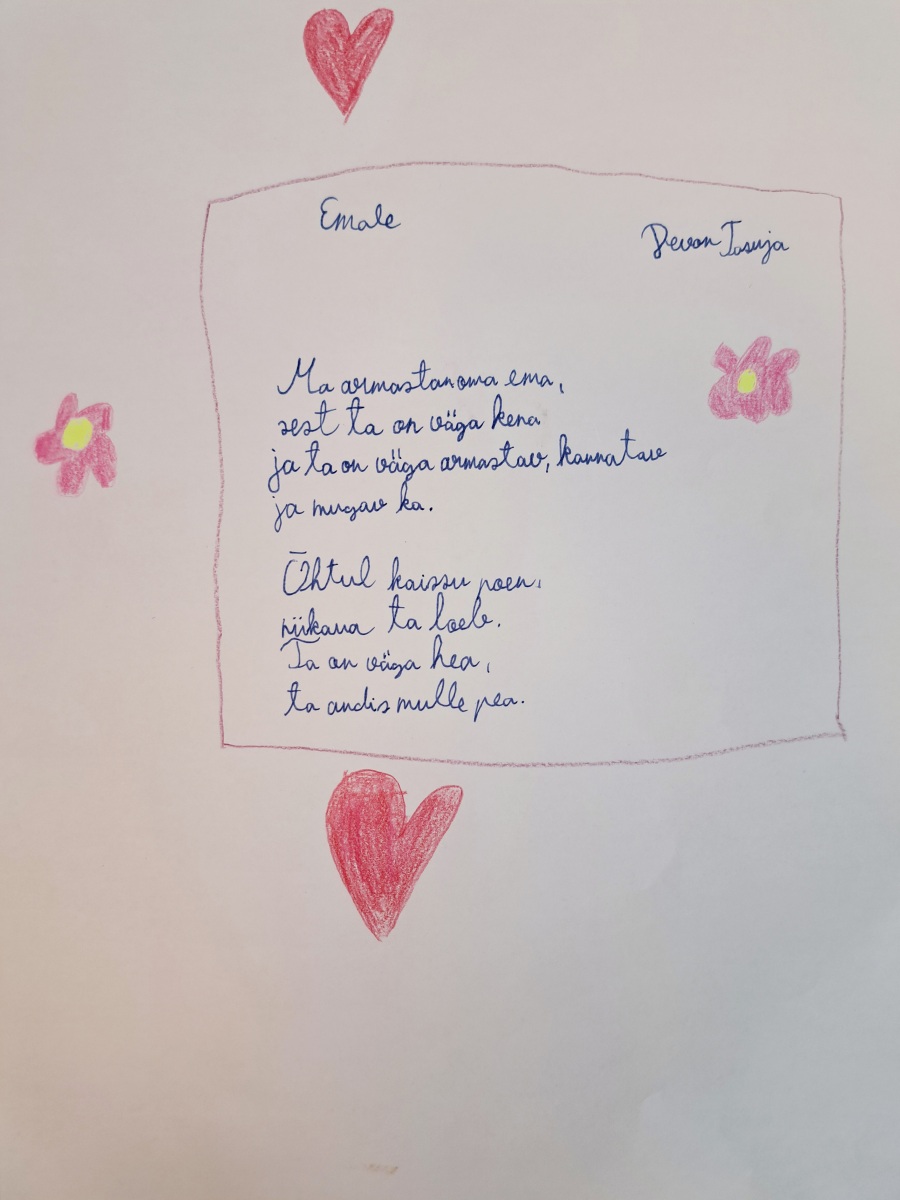 Emale
Devon Tasuja
Ma armastan oma ema,
sest ta on väga kena
ja ta on väga armastav, kannatav
ja mugav ka.
Õhtul kaissu poen,
niikaua ta loeb.
Ta on väga hea,
ta andis mulle pea.